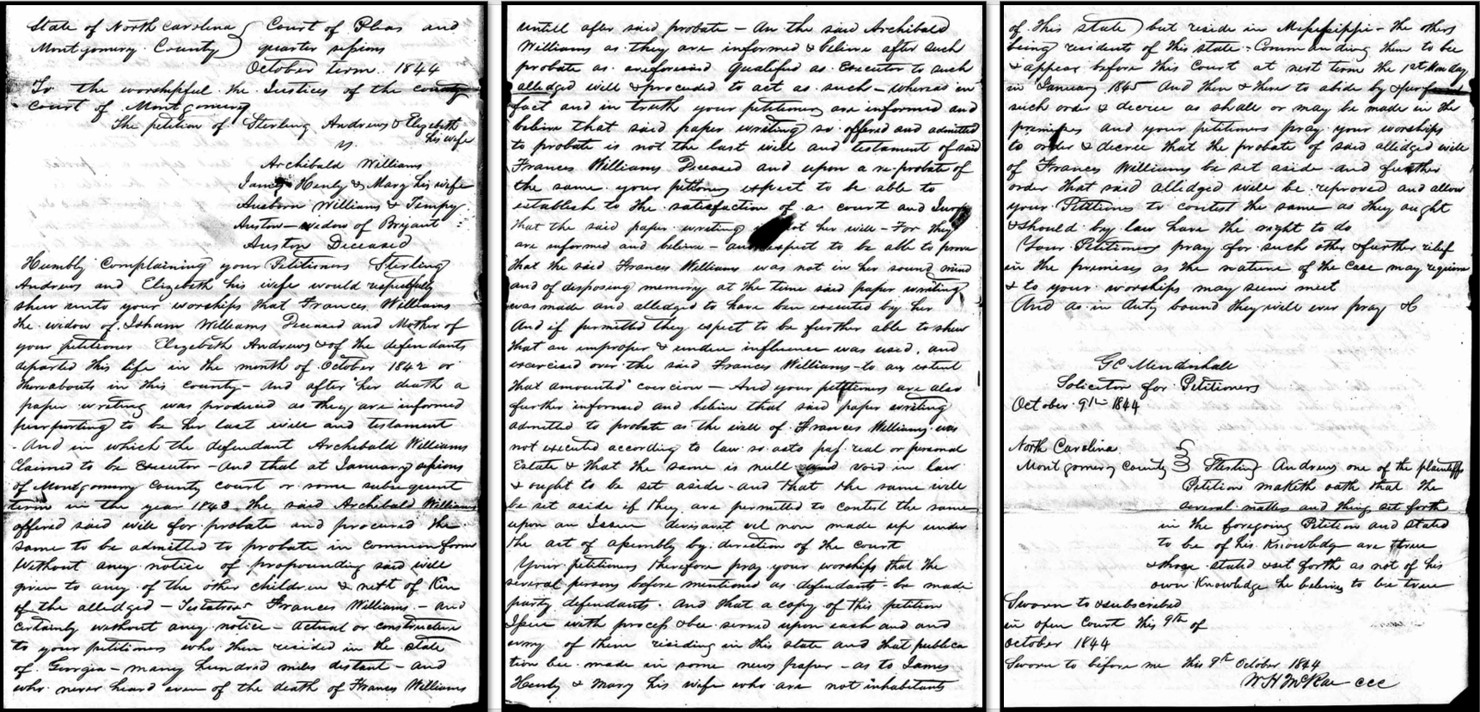 State of North Carolina } Court of Pleas and
Montgomery County } quarter sessions
October term 1844
To the worshipful the Justices of the county
Court of Montgomery
The petition of Sterling Andrews & Elizebeth
his wife
vs
Archibald Williams
James Henly & Mary his wife
Auborn Williams & Tempy
Austin - widow of Bryant
Austin Deceased
Humbly Complaining your Petitioners Sterling
Andrews and Elizebeth his wife would respectfully
shew unto your worships that Frances Williams
the widow of Isham Williams Deceased and Mother of
your petitioner Elizebeth Andrews & of the defendants
departed this life in the month of October 1842 or
thereabouts in this county - and after her death a
paper writing was produced as they are informed
purporting to be her last will and testament
- And in which the defendant Archibald Williams
Claimed to be Executor - And that at January sessions
of Montgomery County court or some subsequent
term in the year 1843 the said Archibald Williams
offered said will for probate and procured the
same to be admitted to probate in common form
Without any notice of propounding said will
given to any of the other children & next of Kin
of the alledged - Testator Frances Williams - and
Certainly without any notice - Actual or constructive
to your petitioners who then resided in the State
of Georgia - many hundred miles distant - and
who never heard even of the death of Frances Williams
untill after said probate - An the said Archibald
Williams as they are informed & believe after such
probate as aforesaid Qualified as Executor to such
alledged will & proceeded to act as such - whereas in
fact and in truth your petitioners are informed and
believe that said paper writing so offered and admitted
to probate is not the last will and testament of said
Frances Williams Deceased and upon a re-probate of
the same your petitions expect to be able to
establish to the satisfaction of a court and Jury
that the said paper writing not her will - For they
are informed and believe - and expect to be able to prove
that the said Frances Williams was not in her sound mind
and of disposing memory at the time said paper writing
was made and alledged to have been executed by her
And if permitted they expect to be further able to shew
that an improper & undue influence was used, and
exercised over the said Frances Williams - to an extent
that amounted coercion - And your petitioners are also
further informed and believe that said paper writing
admitted to probate as the will of Frances Williams was
not executed according to law so as to pass real or personal
Estate & that the same is null and void in law
& ought to be set aside - and that the same will
be set aside if they are permitted to contest the same
upon an Issue devisavit vel non made up under
the act of assembly by direction of the court
Your petitioners therefore pray your worships that the
several persons before mentioned as defendants be made
party defendants. And that a copy of this petition
Issue with process & be served upon each and and
every of them residing in this state and that publica
tion bee made in some news paper - as to James
Henly & Mary his wife who are not inhabitants
of this state but reside in Mississippi - the others
being residents of this state - Commanding them to be
& appear before this Court at next term the 1st Monday
in January 1845 And then & there to abide by & perform
such order & decree as shall or may be made in the
premises and your petitioners pray your worships
to order & decree that the probate of said alledged will
of Frances Williams be set aside and further
order that said alledged will be reproved and allow
your Petitioners to contest the same as they ought
& should by law have the right to do
Your Petitioners pray for such other & further relief
in the premises as the nature of the Case may require
& to your worships may seem meet
And as in duty bound they will ever pray &c
GC Mendenhall
Solicitor for Petitioners
October 9th 1844
North Carolina }
Montgomery County } Sterling Andrews one of the plaintiffs
Petition maketh oath that the
several matters and things set forth
in the foregoing Petition and stated
to be of his Knowledge are true
& those stated & set forth as not of his
own Knowledge he believes to be true
Sworn to & subscribed
in open Court this 9th of
October 1844
Sworn to before me this 9th October 1844
W H McRae ccc